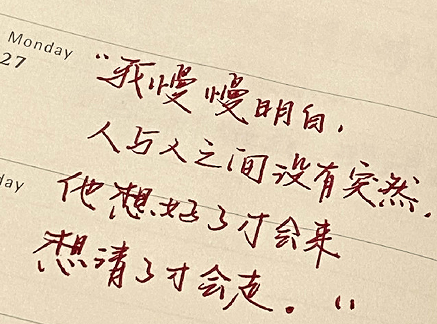 Monday
27
"我慢慢明白,
人与人之间没有突然.
day
他想好了才会来
想清了才会走."